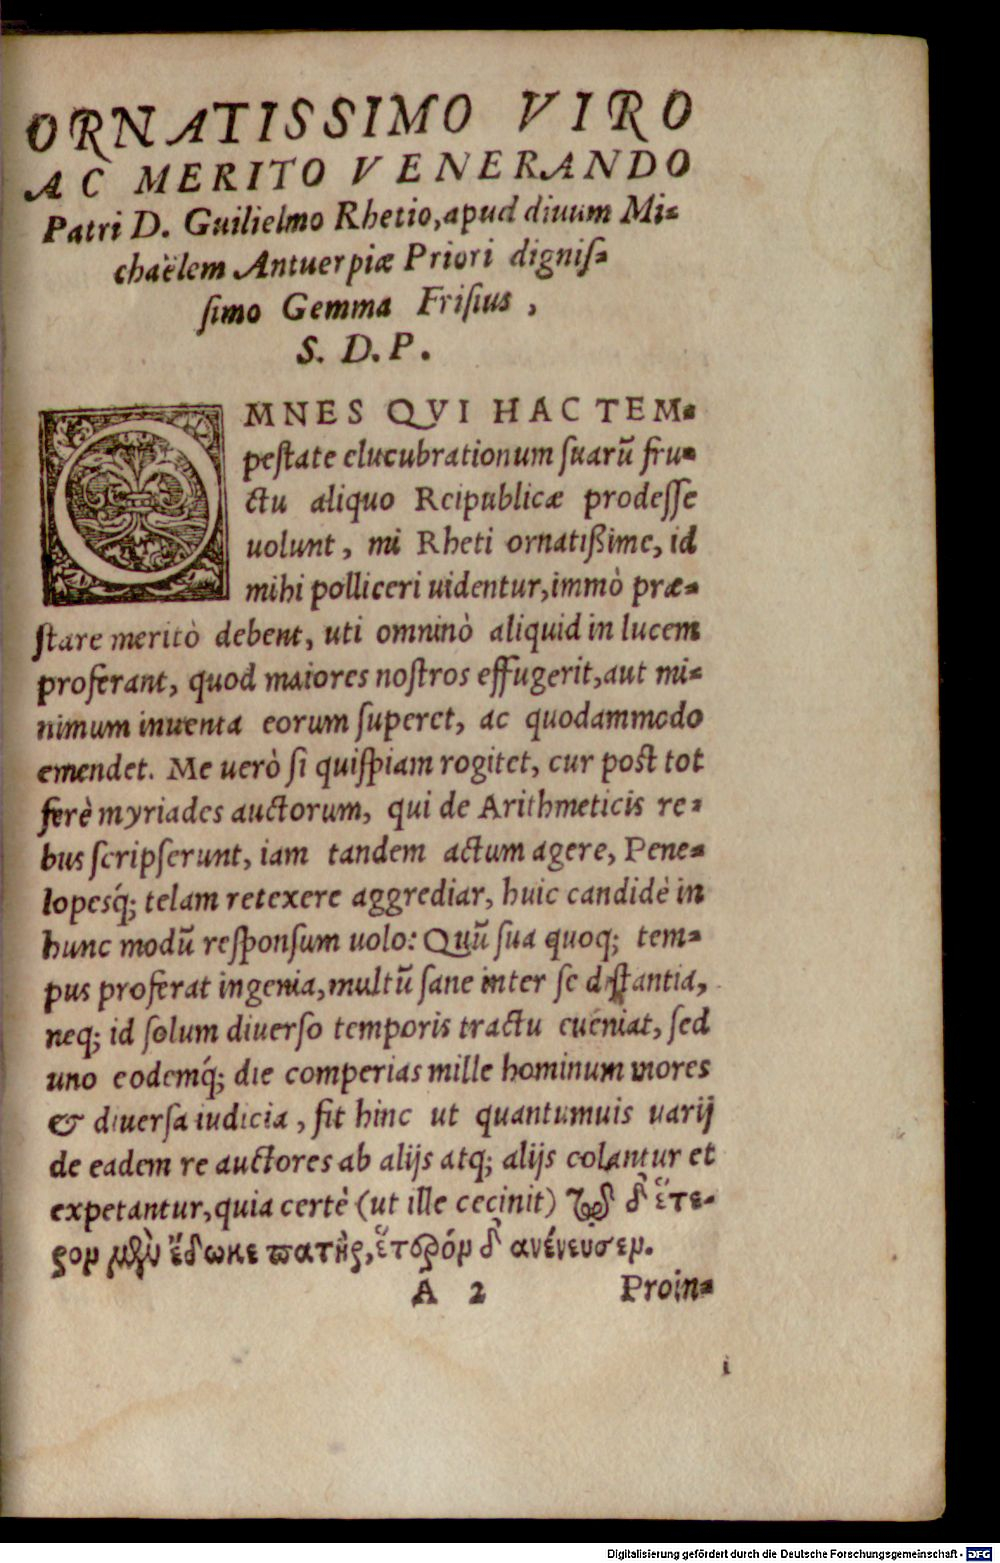 ORNATISSIMO VIRO
AC MERITO VENERANDO
Patri D. Guilielmo Rhetio, apud diuum Mi-
chaëlem Antuerpiæ Priori dignis-
simo Gemma Frisius,
S. D. P.
OMNES QVI HAC TEM-
pestate elucubrationum suarũ fru-
ctu aliquo Reipublicæ prodesse
uolunt, mi Rheti ornatißime, id
mihi polliceri uidentur, immò præ-
stare meritò debent, uti omninò aliquid in lucem
proferant, quod maiores nostros effugerit, aut mi-
nimum inuenta eorum superet, ac quodammodo
emendet. Me uerò si quispiam rogitet, cur post tot
ferè myriades auctorum, qui de Arithmeticis re-
bus scripserunt, iam tandem actum agere, Pene-
lopesq́; telam retexere aggrediar, huic candidè in
hunc modũ responsum uolo: Quũ sua quoq; tem-
pus proferat ingenia, multũ sane inter se distantia,
neq; id solum diuerso temporis tractu eueniat, sed
uno eodemq́; die comperias mille hominum mores
& diuersa iudicia, fit hinc ut quantumuis uarij
de eadem re auctores ab alijs atq; alijs colantur et
expetantur, quia certè (ut ille cecinit) τῷ δ' ἕτε-
ρον μὲν ἔδωκε πατὴρ, ἕτερόν δ' ανένευσεν.
A 2 Proin-
i
Digitalisierung gefördert durch die Deutsche Forschungsgemeinschaft - DFG